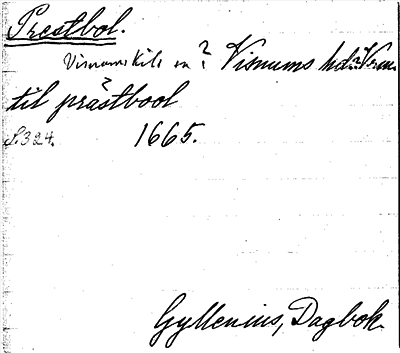 Prestbol.
Visnums Kils sn? Visnums hd? Vrm.
til prästbool
S. 324. 1665.
Gyllenius, Dagbok.